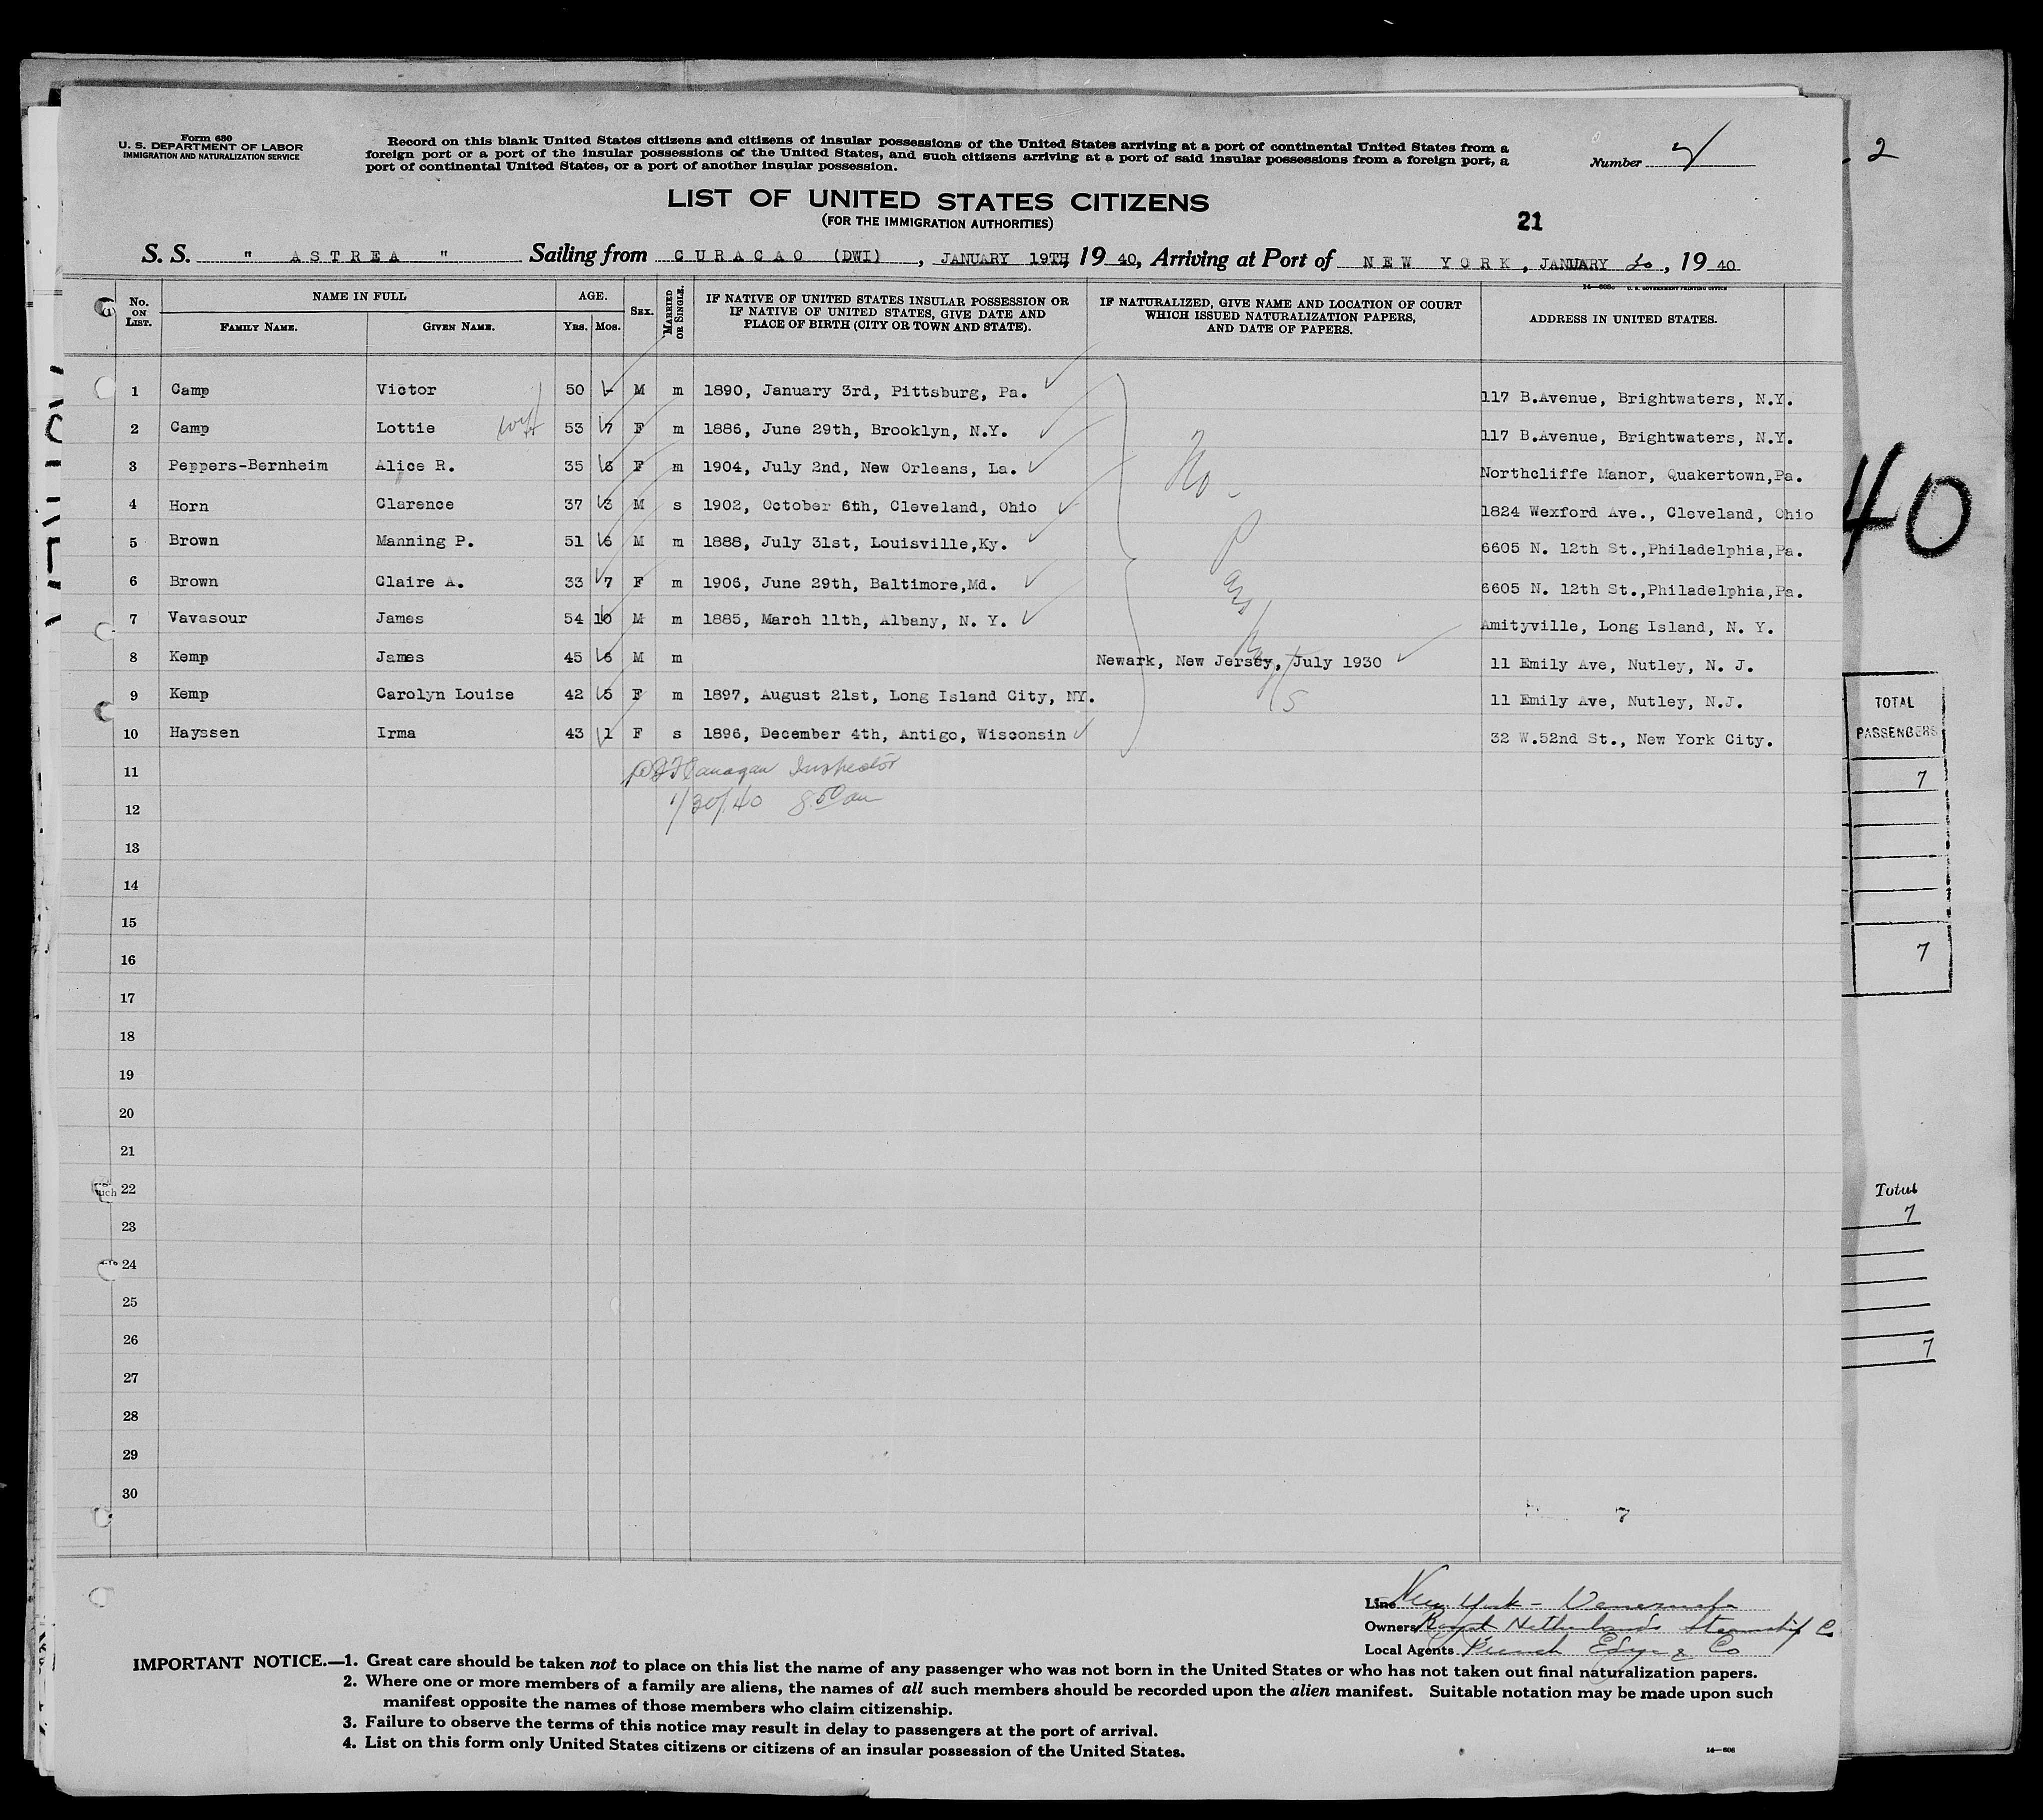 Form 630
U. S. DEPARTMENT OF LABOR
IMMIGRATION AND NATURALIZATION SERVICE
Record on this blank United States citizens and citizens of insular possessions of the United States arriving at a port of continental United States from a
foreign port or a port of the insular possessions of the United States, and such citizens arriving at a port of said insular possessions from a foreign port, a
port of continental United States, or a port of another insular possession.
Number
2
LIST OF UNITED STATES CITIZENS
(FOR THE IMMIGRATION AUTHORITIES)
21
S. S. " ASTREA " Sailing from CURACAO (DWI), JANUARY 19TH, 19 40, Arriving at Port of NEW YORK, JANUARY 30, 19 40
U. S. GOVERNMENT PRINTING OFFICE
No. ON LIST. NAME IN FULL AGE. SEX. MARRIED OR SINGLE. IF NATIVE OF UNITED STATES INSULAR POSSESSION OR IF NATIVE OF UNITED STATES, GIVE DATE AND PLACE OF BIRTH (CITY OR TOWN AND STATE). IF NATURALIZED, GIVE NAME AND LOCATION OF COURT WHICH ISSUED NATURALIZATION PAPERS, AND DATE OF PAPERS. ADDRESS IN UNITED STATES.
FAMILY NAME. GIVEN NAME. YRS. MOS.
1 Camp Victor 50 - M m 1890, January 3rd, Pittsburg, Pa. 117 B.Avenue, Brightwaters, N.Y.
2 Camp Lottie wife 53 7 F m 1886, June 29th, Brooklyn, N.Y. 117 B.Avenue, Brightwaters, N.Y.
3 Peppers-Bernheim Alice R. 35 6 F m 1904, July 2nd, New Orleans, La. Northcliffe Manor, Quakertown,Pa.
4 Horn Clarence 37 3 M s 1902, October 6th, Cleveland, Ohio 1824 Wexford Ave., Cleveland, Ohio
5 Brown Manning P. 51 6 M m 1888, July 31st, Louisville,Ky. 6605 N. 12th St.,Philadelphia,Pa.
6 Brown Claire A. 33 7 F m 1906, June 29th, Baltimore,Md. 6605 N. 12th St.,Philadelphia,Pa.
7 Vavasour James 54 10 M m 1885, March 11th, Albany, N. Y. Amityville, Long Island, N. Y.
8 Kemp James 45 6 M m Newark, New Jersey, July 1930 11 Emily Ave, Nutley, N. J.
9 Kemp Carolyn Louise 42 5 F m 1897, August 21st, Long Island City, NY. 11 Emily Ave, Nutley, N.J.
10 Hayssen Irma 43 1 F s 1896, December 4th, Antigo, Wisconsin 32 W.52nd St., New York City.
No - Passports
11 Flanagan Inspector
12 1/30/40 8 50 am
13
14
15
16
17
18
19
20
21
22
23
24
25
26
27
28
29
30
7
40
TOTAL
PASSENGERS
7
7
Total
7
7
Line New York - Venezuela
Owners Royal Netherlands Steamship Co
Local Agents
IMPORTANT NOTICE.—1. Great care should be taken not to place on this list the name of any passenger who was not born in the United States or who has not taken out final naturalization papers.
2. Where one or more members of a family are aliens, the names of all such members should be recorded upon the alien manifest. Suitable notation may be made upon such
manifest opposite the names of those members who claim citizenship.
3. Failure to observe the terms of this notice may result in delay to passengers at the port of arrival.
4. List on this form only United States citizens or citizens of an insular possession of the United States.
14—606